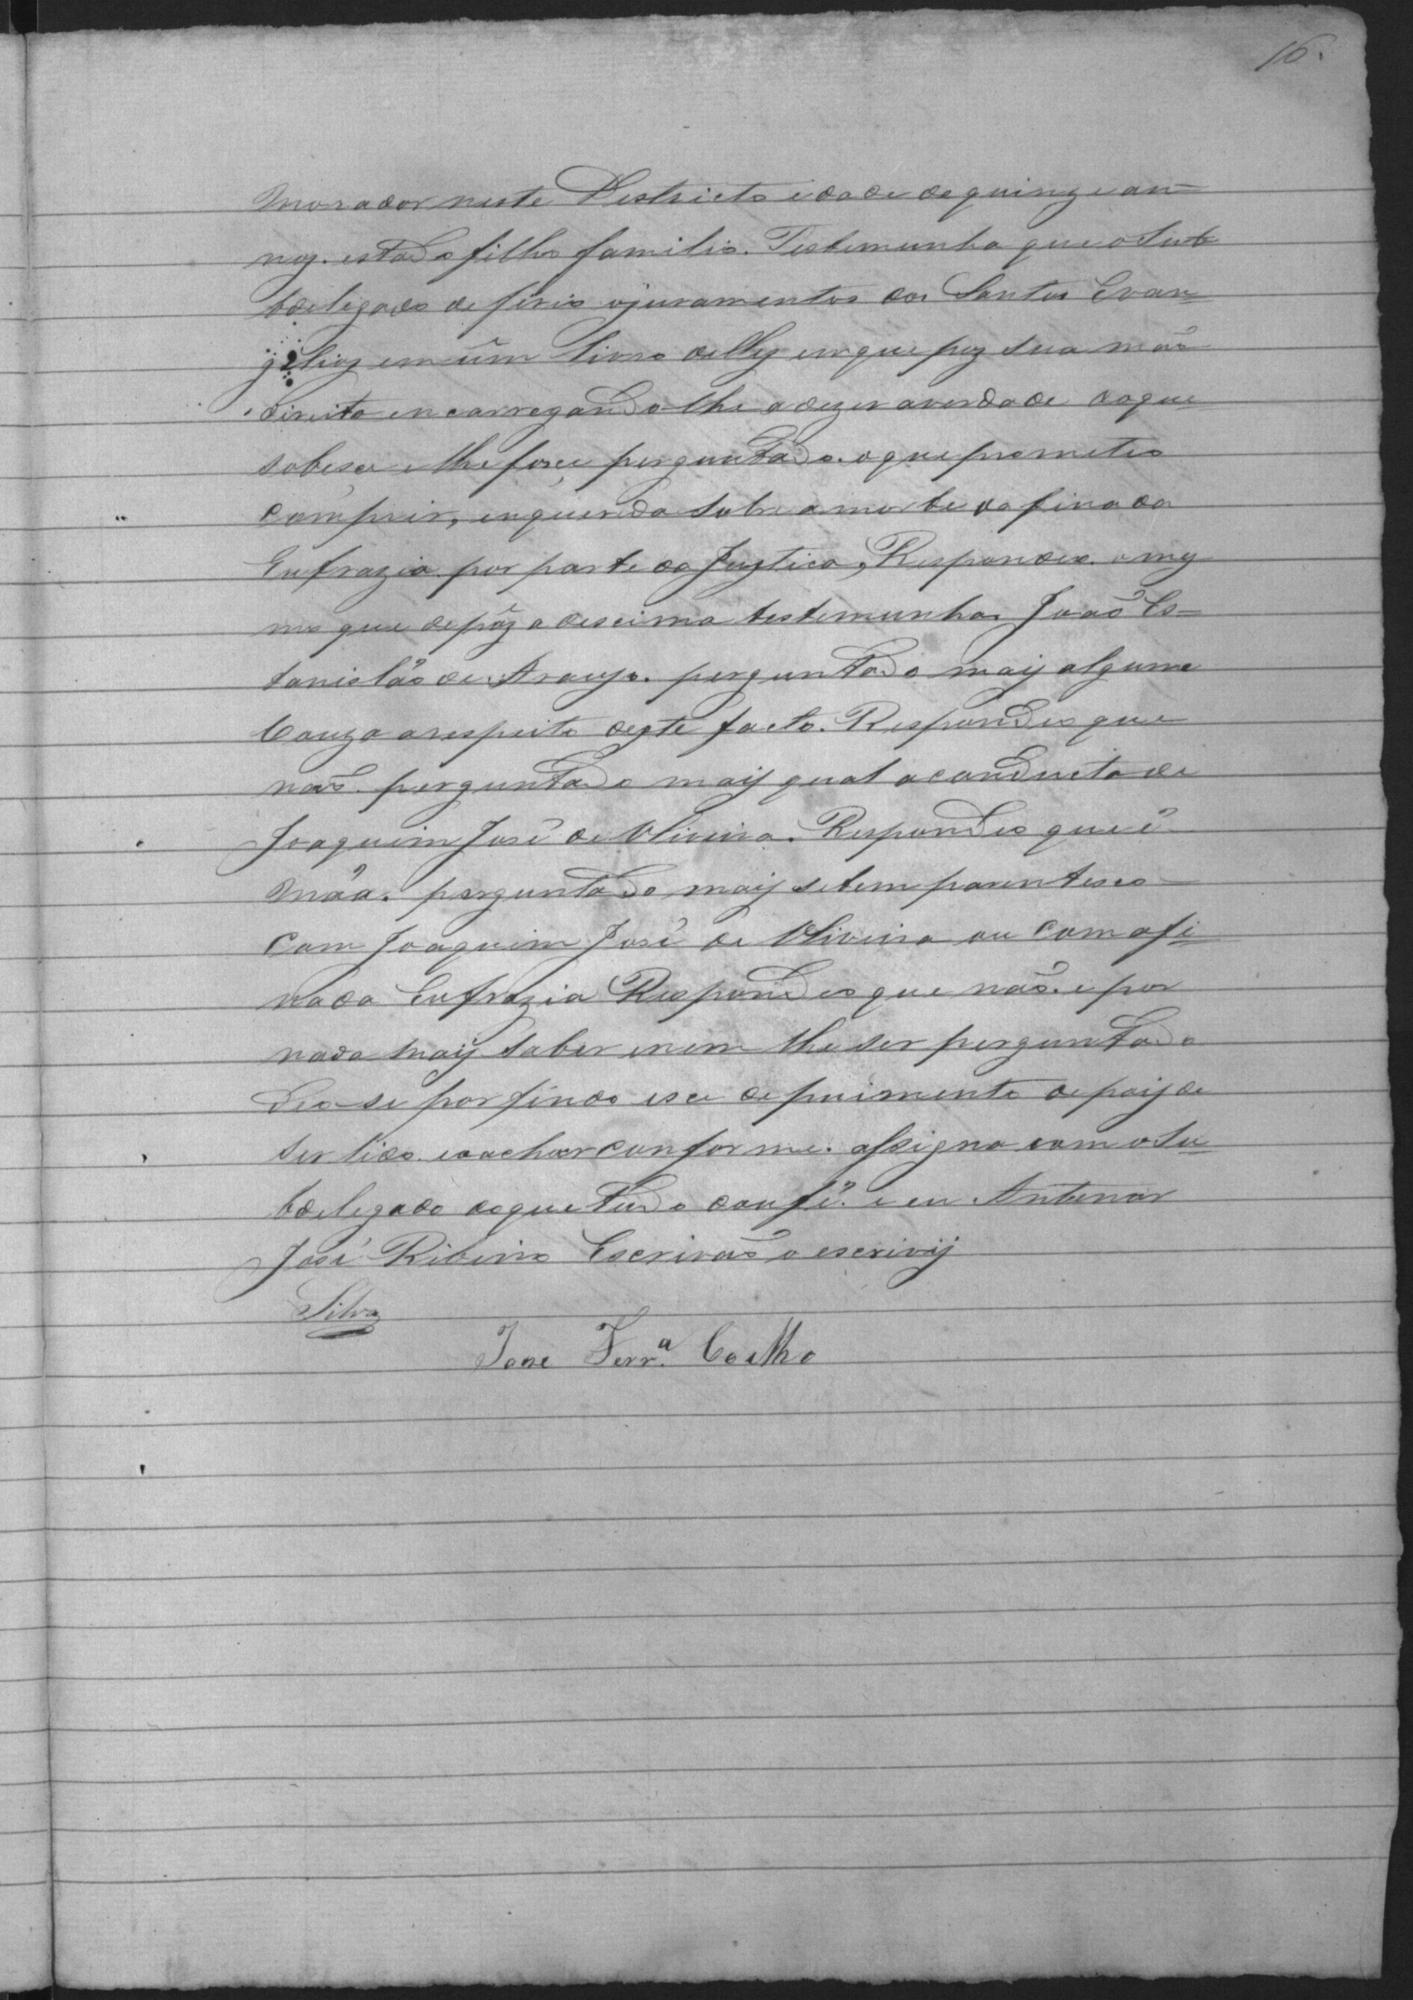 16.
Morador neste Destricto idade de quinze an-
nos. estado filho familio. Testemunha que o Sub
bdelegado deferio o juramentos dos Santos Evan-
gelios em um livro delles em que poz sua mão
direita encarregando-lhe a dizer a verdade do que
sobese e lhe fose perguntado. o que prometeo
comprir, enquerida sobre a morte da finada
Eufrazia por parte da Justica, Respondeo o mes
mo que depôz a descima testemunha João Es-
tanislão de Araujo. perguntado mais alguma
Couza a respeito deste facto. Respondeo que
não. perguntado mais qual a conducta de
Joaquim José de Oliveira. Respondeo que é
máa. perguntado mais se tem parentesco
Com Joaquim José de Oliveira ou com a fi
nada Eufrazia Respondeo que não. e por
nada mais saber e nem lhe ser perguntado
deo-se por findo ese depuimento depois de
ser lido. e o achar conforme. assigna com o Su
bdelegado do que tudo dou fé. e eu Antenor
José Ribeiro Escrivão o escrivij
Silva
Jose Ferr.ª Coelho